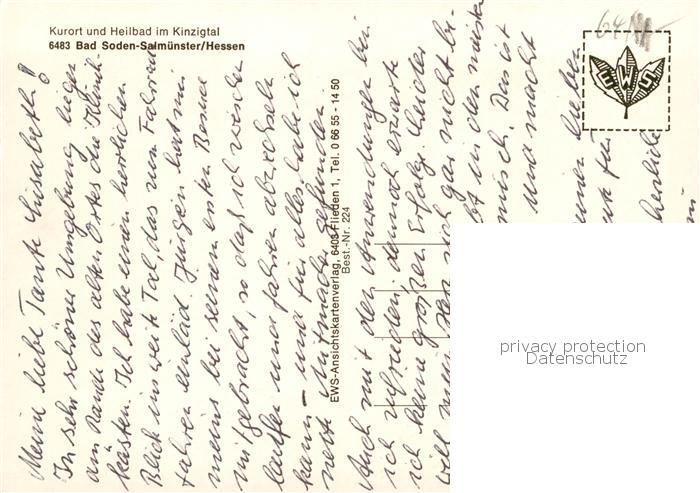 Kurort und Heilbad im Kinzigtal
6483 Bad Soden-Salmünster/Hessen
Meine liebe Tante Elisabeth!
In sehr schöner Umgebung, liegen
am Rande des alten Ortes die Klinik-
kästen. Ich habe einen herrlichen
Blick ins weite Tal, das zum Fahrrad
fahren einläd. Jürgen hat mir
meins bei seinem ersten Besuch
mitgebracht, so daß ich zwischen
laufen und fahren abwechseln
kann – und für alles habe ich
nette Mitmacher gefunden.
Auch mit den Anwendungen bin
ich zufrieden, dennoch erwarte
ich keine großen Erfolg. Leider
will mein
sich gar nicht be-
ist in den meisten
Das ist
und macht
EWS-Ansichtskartenverlag, 6403 Flieden 1, Tel. 0 66 55 - 14 50
Best.-Nr. 224
EWS
64
privacy protection
Datenschutz